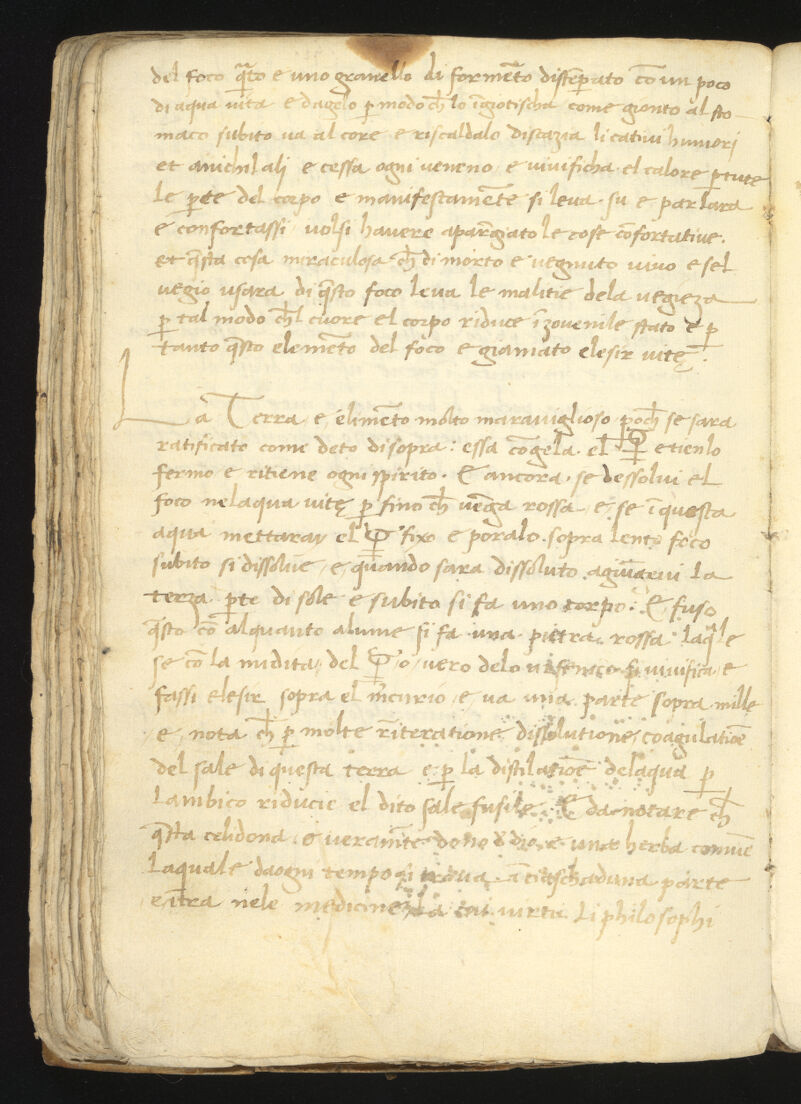 del foco q̃to e uno granello di formẽto disseperato cõ un poco
di aqua vita e dagelo p modo ch̃ lo ĩgiotischa come gionto al sto
maco subito va al core e riscaldalo discazia li cativi humorj
et anichilali e cessa ogni veneno e vivificha el calore p tute
le pte del corpo e manifestamẽte si leva su e parlara
e confortassi volsi havere aparẽgiato le cose cõfortative.
et q̃sta cosa miraculosa ch̃ di morto e vegnuto vivo e sel
vegio usara di q̃sto foco leva le malitie dela vegieza
p tal modo ch̃l cuore el corpo riduce ĩ zovenile stato e p
tanto q̃sto elemẽto del foco e giamato elesir vitę.
La Terra e elimẽto molto maraviglioso poch̃ se sara
ratificato come deto di sopra: essa cõgela el ☿ e tienlo
fermo e ritiene ogni spirito. Et ancora se dessolvi el
foco nelaqua vitę p fino ch̃ vẽga rossa e se ĩ questa
aqua mettaray el ☿ fixo e poralo sopra lento foco
subito si dissolve e quãndo sara dissoluto agiũgervi la
terza pte di sole e subito si fa uno corpo: Et fuso
q̃sto cõ alquanto alume si fa una pietra rossa laq̃le
se cõ la midita del ☿ o vero delo si vivifica e
fassi elesir sopra el m̃curio e va una parte sopra mille
e nota ch̃ p molte r̃iteratione dissolutione coagulatiõe
del sale di questa terra e p la distilatiõe delaqua p
lambico riducie el dito sale fusile Et da notare ch̃
q̃sta celidona e veramẽte dono d dio e una herba comũe
laquale daogni tempo si trova ĩ ciaschaduna parte
e ĩtra nele medicine virtu Li philosophi